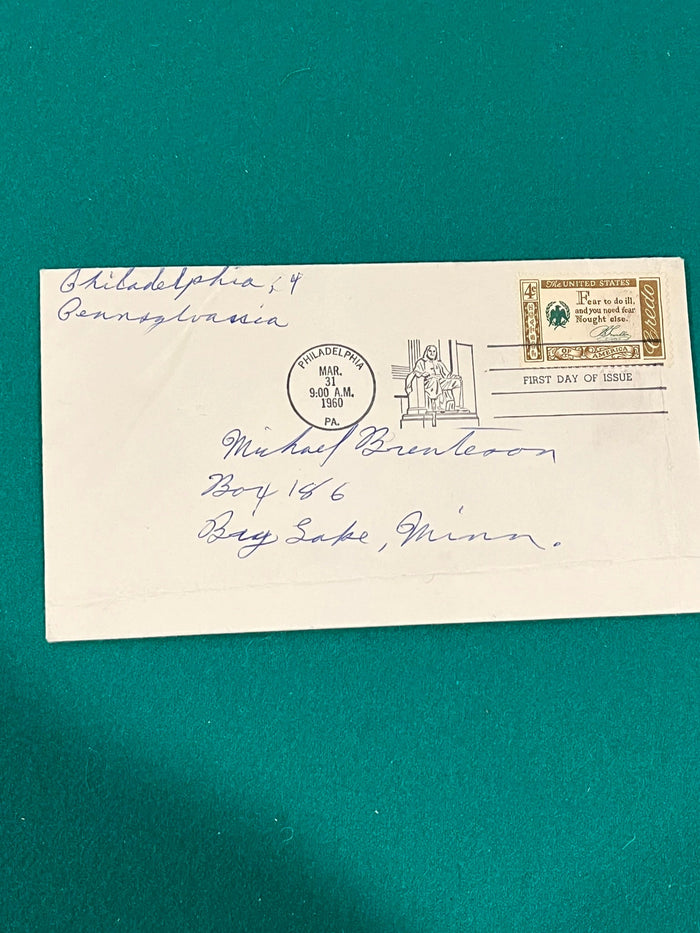 Philadelphia, 4
Pennsylvania
4¢
The UNITED STATES
Fear to do ill,
and you need fear
Nought else.
B Franklin
OF AMERICA
Credo
PHILADELPHIA
MAR.
31
9:00 A.M.
1960
PA.
FIRST DAY OF ISSUE
Michael Brenteson
Box 186
Bay Lake, Minn.